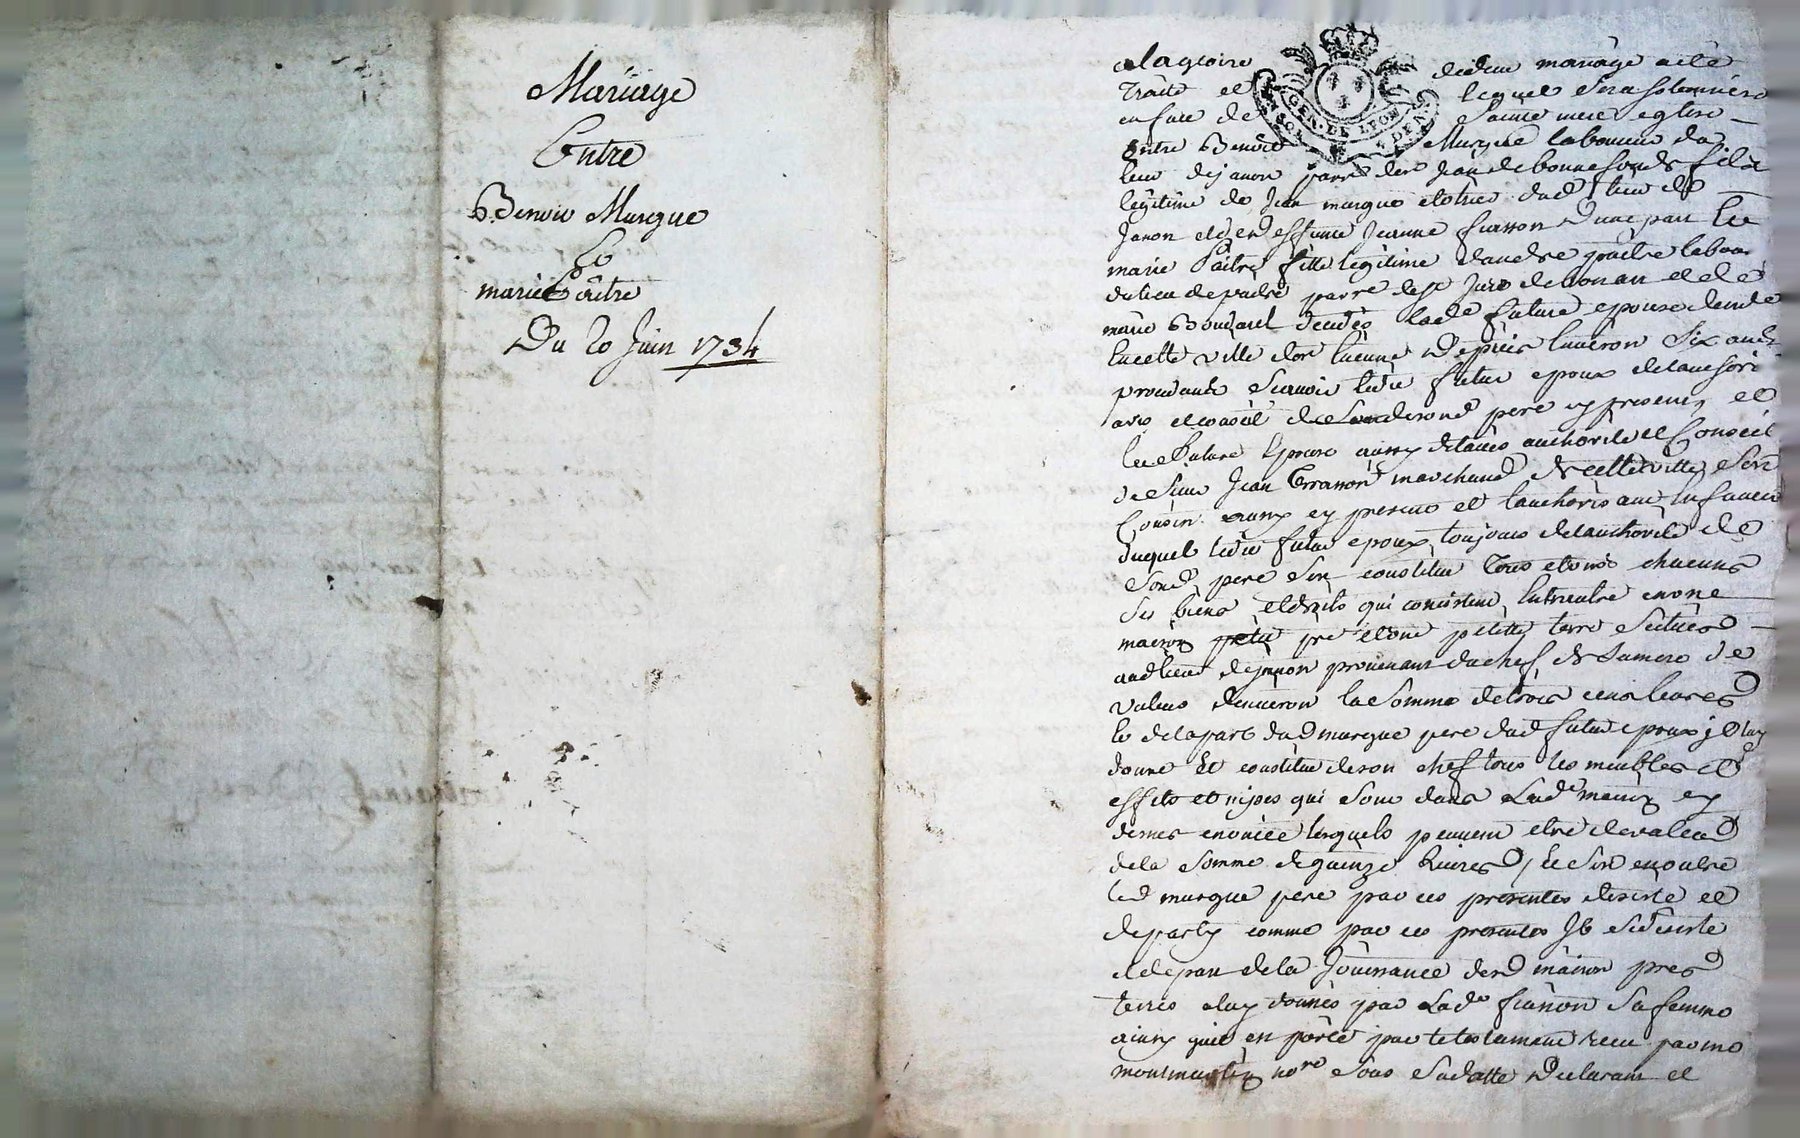 Mariage
Entre
Benoit Murgue
Et
marie Paitre
Du 20 Juin 1734
GEN. DE LYON
alagloire de dieu mariage a été
Traité et lequel sera solennizé
en face de Sainte mere eglise
Entre Benoit Murgue laboureur du
lieu de janon parr. de Jean de bonnefonds fils
legitime de Jean murgue dud. lieu de
Janon et de deffunte Jeanne d'une part Et
marie Paitre fille legitime d'andre paitre labour
du lieu de parr. de St Jure de bonan et de
marie decedes lad. future epouse demte
en cette ville de st Etienne depuis environ Six ans
procedants scavoir ledit futur epoux de lauthorite
avis et conseil de sond. pere cy present, et
lad. future Epouse aussy de lavis authorite et Conseil
de Sieur Jean Terrasson marchand de cette ville son
Cousin aussy cy present et lauthorisant En faveur
duquel ledit futur epoux toujours de lauthorité de
Sond. pere s'est constitué Tous et uns chacuns
Ses biens et droits qui consistent en une
maison petit pré et une petite terre scitués
aud. lieu de janon provenant du chef de Sa mere de
valeur denviron la Somme de trois cens livres
Et de la part dud. murgue pere dud. futur epoux il luy
donne Et constitue de son chef tous les meubles et
effets et nipes qui sont dans Lad. maison cy
dessus enoncée lesquels peuvent etre de valeur
de la Somme de quinze livres, Et s'est en outre
led. murgue pere par ces presentes desisté et
departy comme par ces presentes Il se desiste
et depart de la Jouissance desd. maison pres
terres a luy donnés par Lad. sa femme
ainsy quil en porte par le testament receu par me
montmartin nore Sous Sa datte declarant et